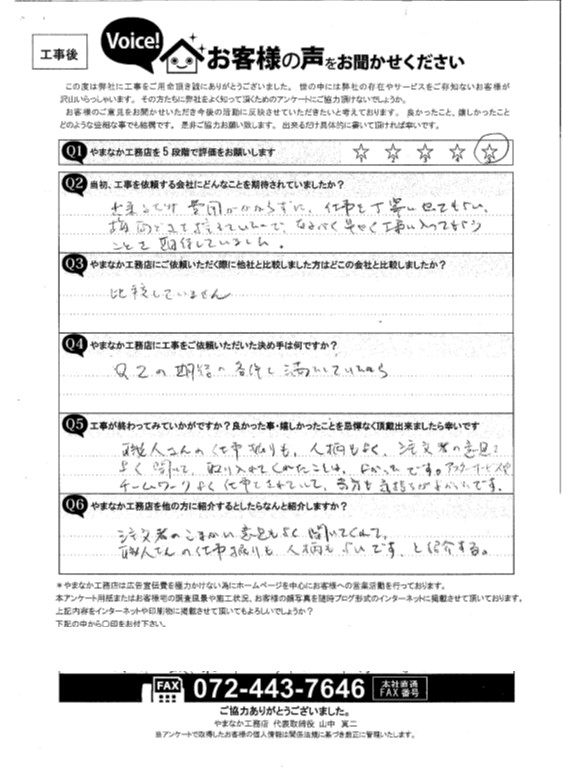 工事後
Voice!
お客様の声をお聞かせください
この度は弊社に工事をご用命頂き誠にありがとうございました。 世の中には弊社の存在やサービスをご存知ないお客様が
沢山いらっしゃいます。 その方たちに弊社をよく知って頂くためのアンケートにご協力頂けないでしょうか。
お客様のご意見をお聞かせいただき今後の活動に反映させていただきたいと考えております。 良かったこと、嬉しかったこと
どのような些細な事でも結構です。 是非ご協力お願い致します。 出来るだけ具体的に書いて頂ければ幸いです。
Q1 やまなか工務店を5段階で評価をお願いします
1 2 3 4 5
Q2 当初、工事を依頼する会社にどんなことを期待されていましたか?
費用がかからずに、仕事を丁寧にしてもらい、
なるべく早く工事に入ってもらう
ことを期待していました。
Q3 やまなか工務店にご依頼いただく際に他社と比較しました方はどこの会社と比較しましたか?
比較していません
Q4 やまなか工務店に工事をご依頼いただいた決め手は何ですか?
Q2の期待の条件を満たしていたから
Q5 工事が終わってみていかがですか?良かった事・嬉しかったことを忌憚なく頂戴出来ましたら幸いです
職人さんの仕事振りも、人柄もよく、注文者の意見を
よく聞いて、取り入れてくれたことは、よかったです。
チームワークよく仕事をされていて、気持ちがよかったです。
Q6 やまなか工務店を他の方に紹介するとしたらなんと紹介しますか?
注文者のこまかい意見もよく聞いてくれて、
職人さんの仕事振りも、人柄もよいです、と紹介する。
*やまなか工務店は広告宣伝費を極力かけない為にホームページを中心にお客様への営業活動を行っております。
本アンケート用紙またはお客様宅の調査風景や施工状況、お客様の顔写真を随時ブログ形式のインターネットに掲載させて頂いております。
上記内容をインターネットや印刷物に掲載させて頂いてもよろしいでしょうか?
下記の中から〇印をお付下さい。
FAX 072-443-7646 本社直通 FAX番号
ご協力ありがとうございました。
やまなか工務店 代表取締役 山中 寛二
当アンケートで取得したお客様の個人情報は関係法規に基づき厳正に管理いたします。